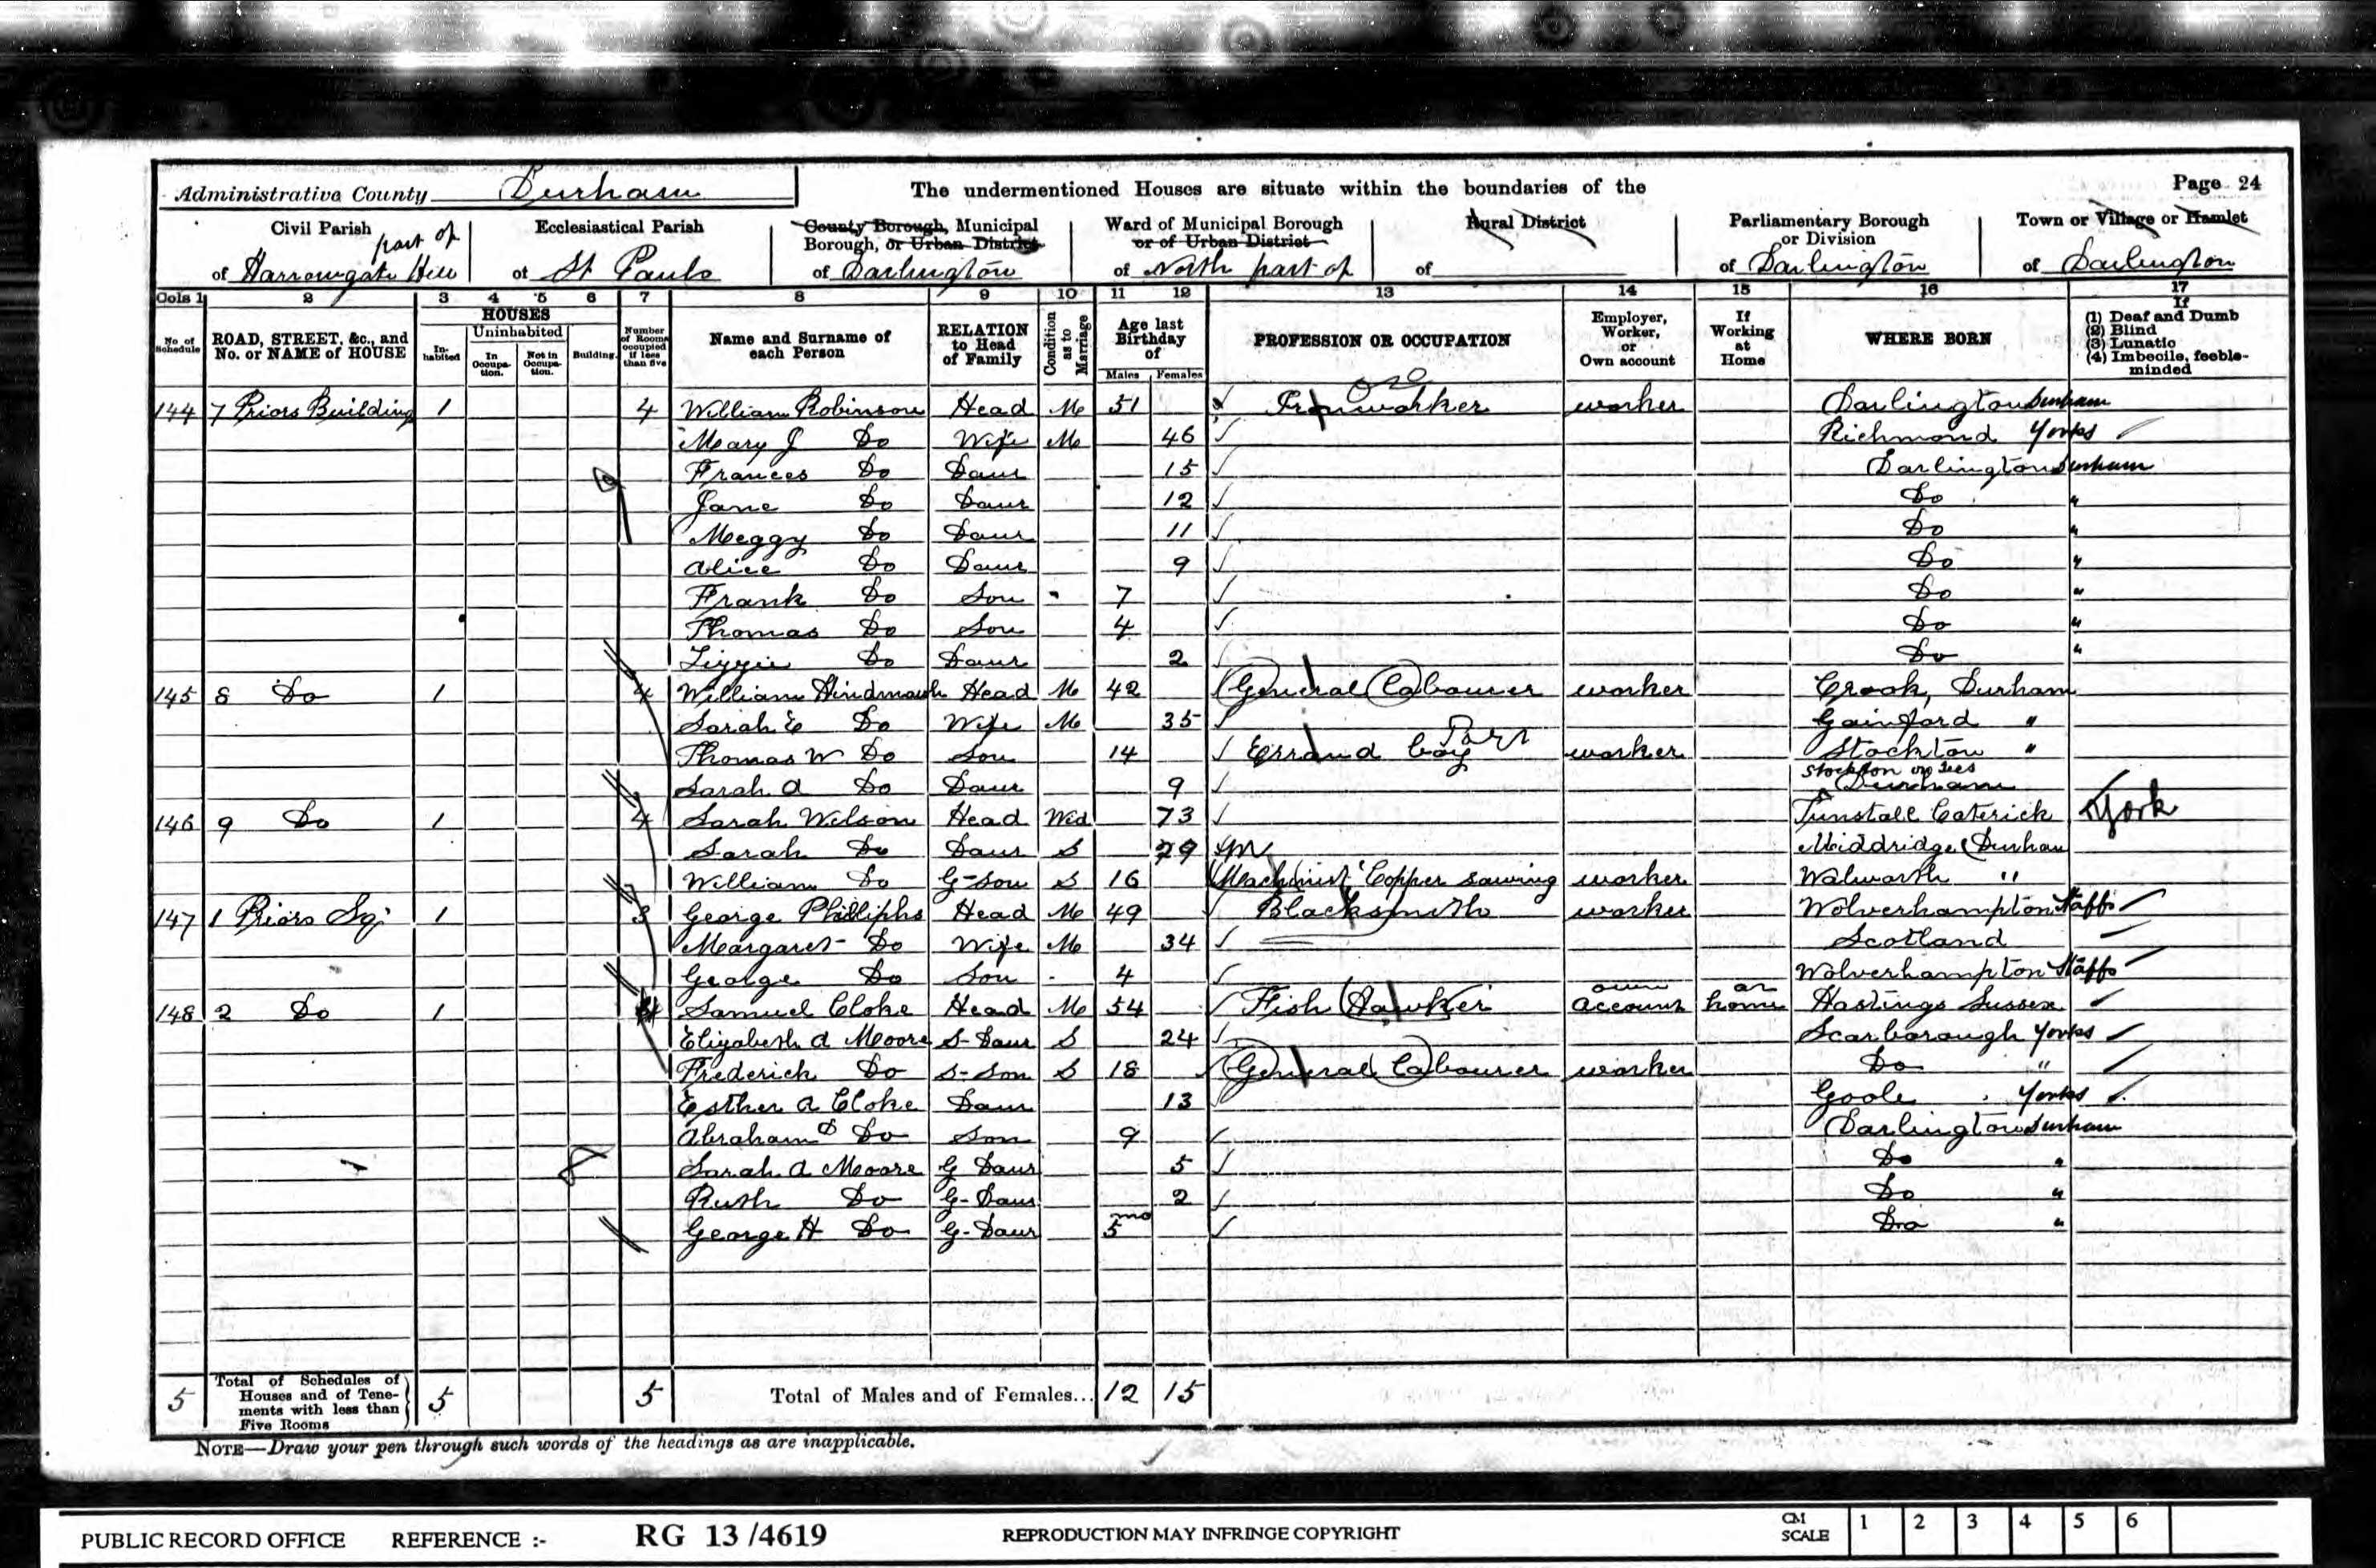 Administrative County Durham
The undermentioned Houses are situate within the boundaries of the
Page 24
Civil Parish part of
of Harrowgate Hill
Ecclesiastical Parish
of St Pauls
County Borough, Municipal
Borough, or Urban District
of Darlington
Ward of Municipal Borough
or of Urban District
of North part of
Rural District
of
Parliamentary Borough
or Division
of Darlington
Town or Village or Hamlet
of Darlington
Cols 1 2 3 4 5 6 7 8 9 10 11 12 13 14 15 16 17
No. of Schedule
ROAD, STREET, &c., and No. or NAME of HOUSE
HOUSES
Inhabited
Uninhabited
In Occupation.
Not in Occupation.
Building.
Number of Rooms occupied if less than five
Name and Surname of each Person
RELATION to Head of Family
Condition as to Marriage
Age last Birthday of
Males Females
PROFESSION OR OCCUPATION
Employer, Worker, or Own account
If Working at Home
WHERE BORN
If
(1) Deaf and Dumb
(2) Blind
(3) Lunatic
(4) Imbecile, feeble-minded
144 7 Priors Building 1 4 William Robinson Head M 51 Ironworker worker Darlington Durham
Mary J Do Wife M 46 Richmond Yorks
Frances Do Daur 15 Darlington Durham
Jane Do Daur 12 Do "
Meggy Do Daur 11 Do "
Alice Do Daur 9 Do "
Frank Do Son 7 Do "
Thomas Do Son 4 Do "
Lizzie Do Daur 2 Do "
145 8 Do 1 4 William Hindmarsh Head M 42 General Labourer worker Crook, Durham
Sarah E Do Wife M 35 Gainford "
Thomas W Do Son 14 Errand boy worker Stockton "
Sarah A Do Daur 9 Stockton on Tees Durham
146 9 Do 1 4 Sarah Wilson Head Wid 73 Tunstall Caterick York
Sarah Do Daur S 29 Middridge Durham
William Do G-Son S 16 Machinist Copper sawing worker Walworth "
147 1 Priors Sq. 1 3 George Philliphs Head M 49 Blacksmith worker Wolverhampton Staffs
Margaret Do Wife M 34 Scotland
George Do Son 4 Wolverhampton Staffs
148 2 Do 1 4 Samuel Cloke Head M 54 Fish Hawker own account at home Hastings Sussex
Elizabeth A Moore S-Daur S 24 Scarborough Yorks
Frederick Do S-Son S 18 General Labourer worker Do "
Esther A Cloke Daur 13 Goole Yorks
Abraham Do Son 9 Darlington Durham
Sarah A Moore G Daur 5 Do "
Ruth Do G-Daur 2 Do "
George H Do G-Daur 5 mo Do "
5 Total of Schedules of Houses and of Tenements with less than Five Rooms 5 5 Total of Males and of Females... 12 15
NOTE—Draw your pen through such words of the headings as are inapplicable.
PUBLIC RECORD OFFICE REFERENCE :- RG 13 /4619 REPRODUCTION MAY INFRINGE COPYRIGHT CM SCALE 1 2 3 4 5 6